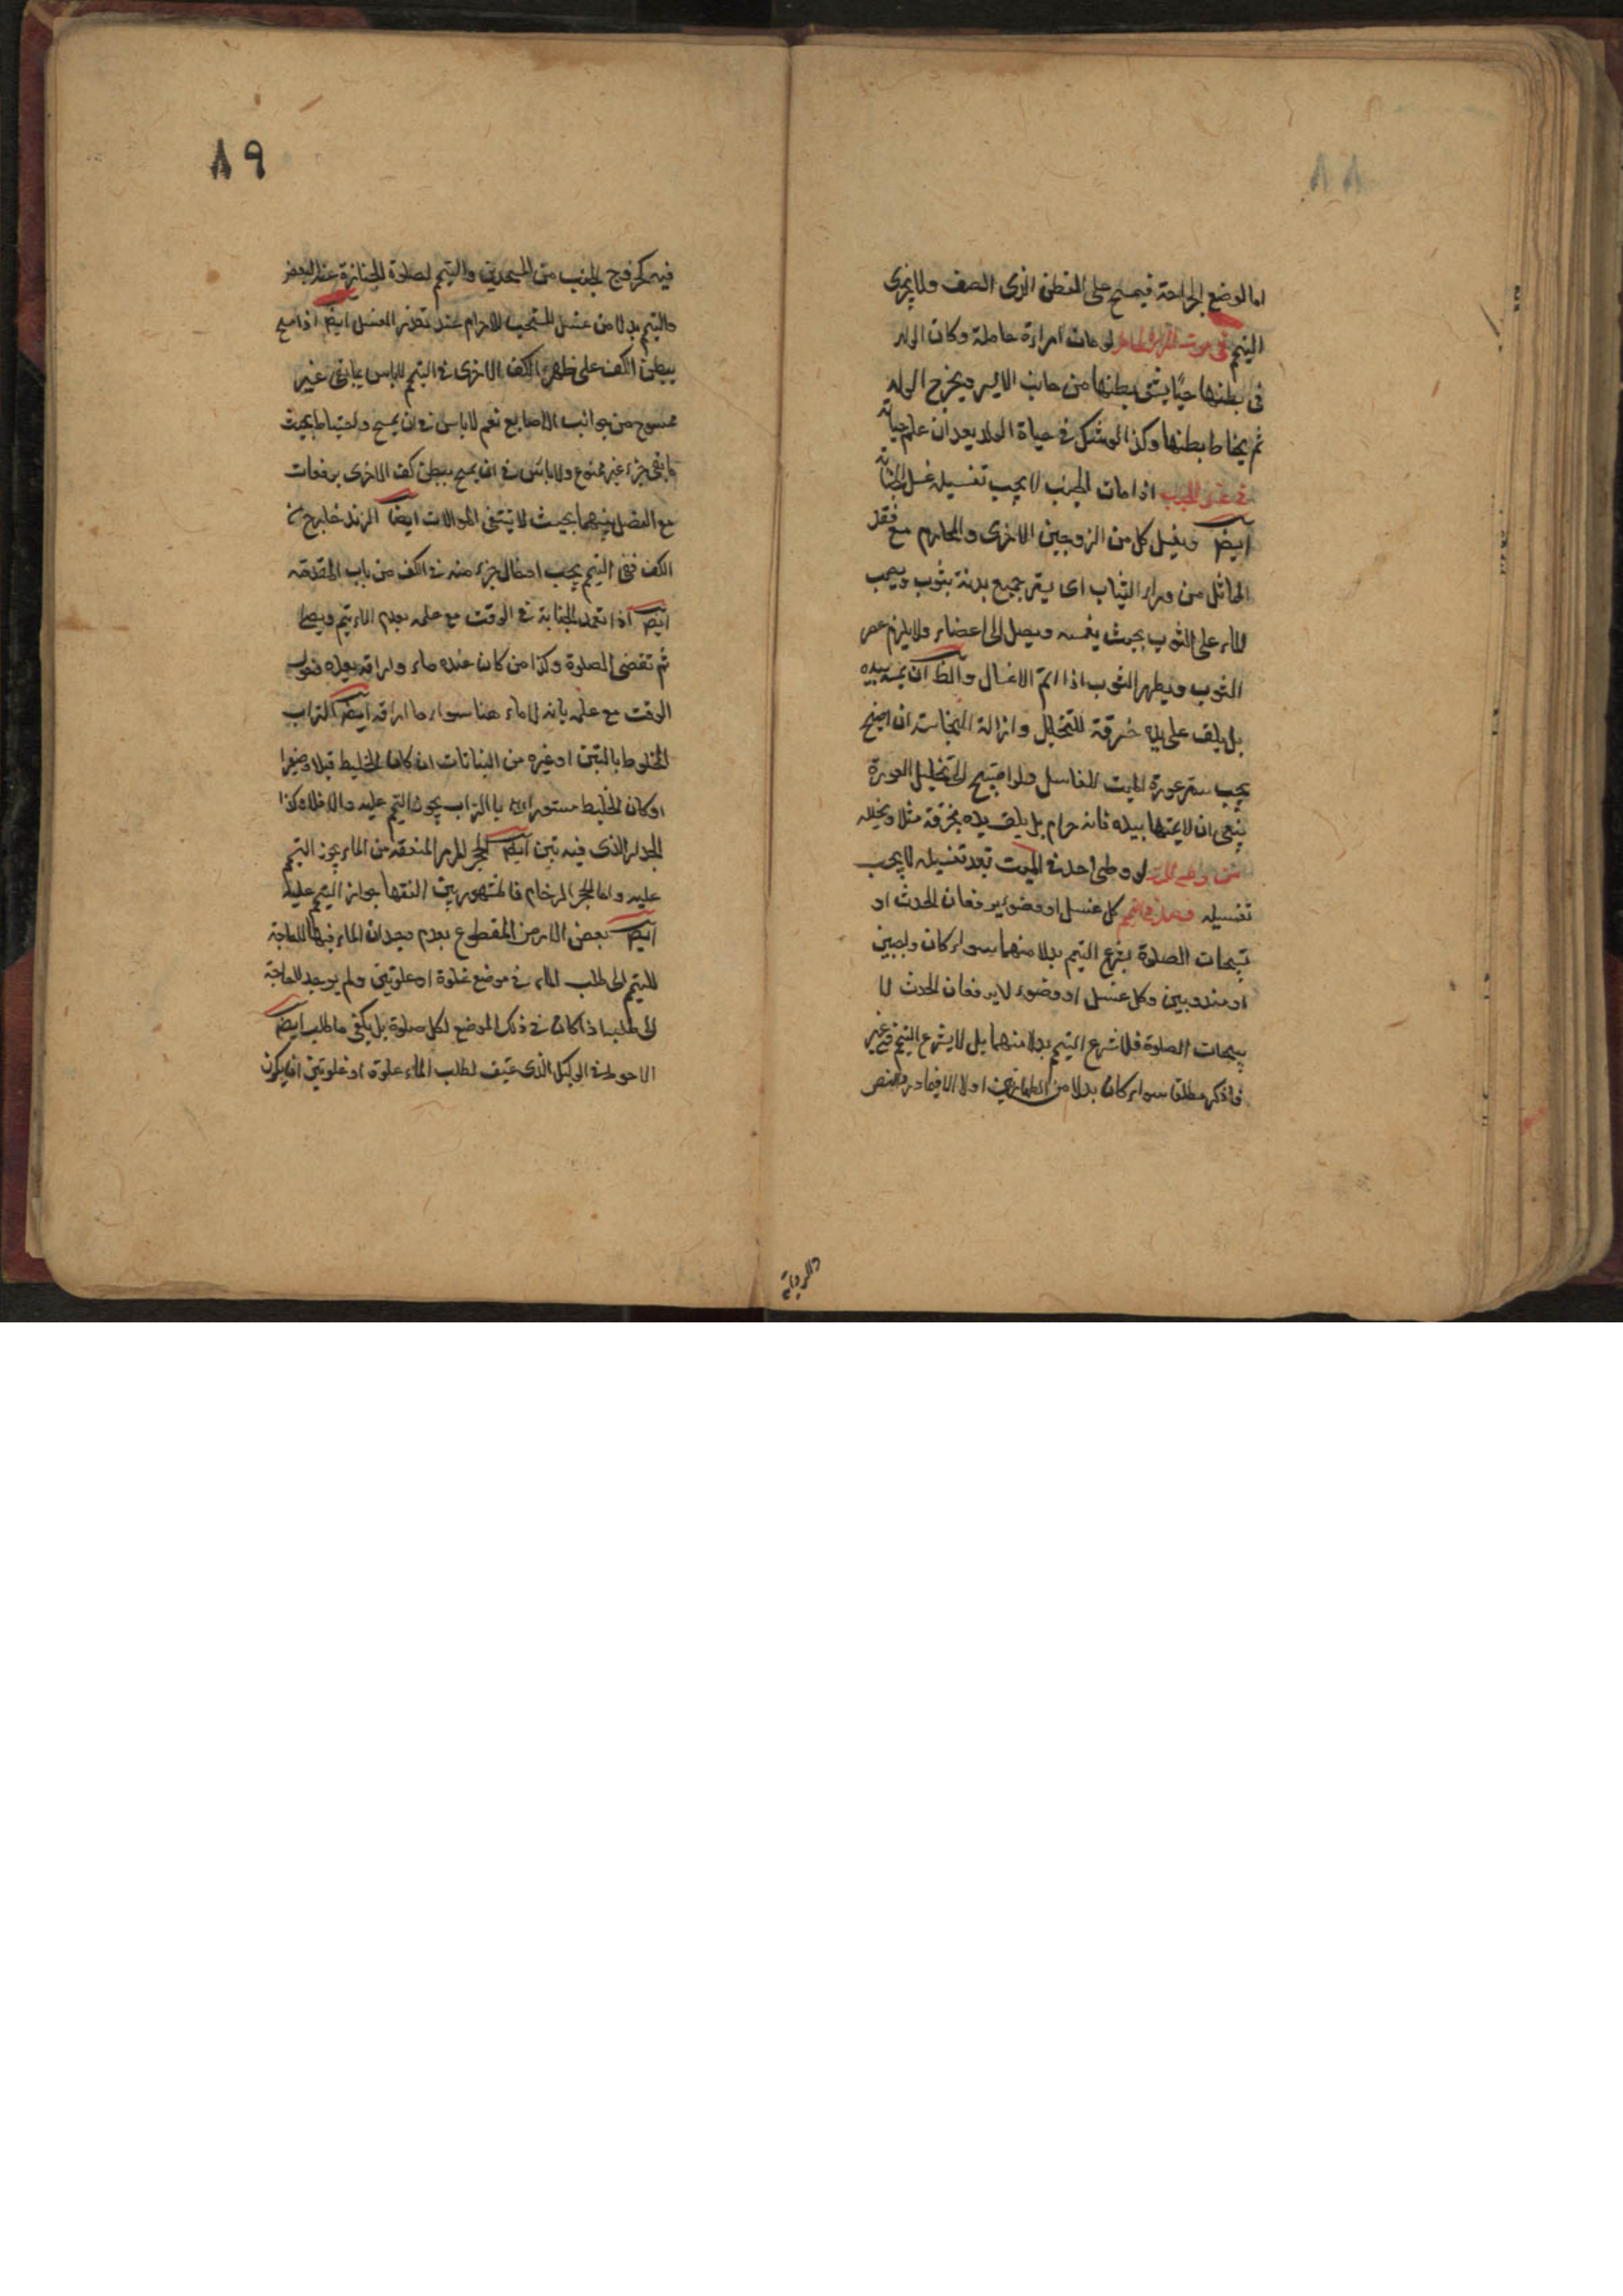 ٨٨
اما لوضع الجراحة فيمسح على القطن الذى الصق ولا يجزى
التيمم فى موت المراة الحامل لو مات امراة حاملة وكان الولد
فى بطنها حيّا يشق بطنها من جانب الايسر ويخرج الولد
ثم يخاط بطنها وكذا لو شك فى حياة الولد بعد ان علم حياته
فى غسل الجنب اذا مات الجنب لا يجب تغسيله غسل الجنابة
ايضا ويغسل كل من الزوجين الاخرى والمحارم مع فقد
المماثل من وراء الثياب اى يستر جميع بدنه بثوب ويصب
الماء على الثوب بحيث يغمسه ويصل الى اعضاء ولا يلزم عصر
الثوب ويطهر الثوب اذا اتم الاغسال والظ ان يمسه بيده
بل يلف على يده خرقة للتخليل وازالة النجاسة ان احتيج
يجب ستر عورة الميت للغاسل ولو احتيج الى تخليل العورة
ينبغى ان لا يمسها بيده فانه حرام بل يلف يده بخرقة مثلا ويخلله
من وطى الميت لو وطى احد فى الميت بعد تغسيله لا يجب
تغسيله كل غسل او وضوء يرفعان الحدث او
تبيحان الصلوة يشرع التيمم بدلا منهما سواء كان واجبين
او مندوبين وكل غسل او وضوء لا يرفعان الحدث لا
يبيحان الصلوة فلا شرع التيمم بدلا منهما بل لا يشرع التيمم فى غير
ما ذكر مطلقا سواء كان بدلا من الطهارتين اولا الا فيما ورد النص
والرواية
٨٩
فيه كخروج الجنب من المسجدين والتيمم لصلوة الجنازة عند البعض
والتيمم بدلا من غسل المستحب للاحرام عند تعذر الغسل ايضا اذا مسح
ببطن الكف على ظهر الكف الاخرى فى التيمم لا باس بما بقى غير
ممسوح من جوانب الاصابع نعم لا باس فى ان يمسح واحتياطا بحيث
ما بقى جزء غير ممسوح ولا باس فى ان يمسح ببطن كف الاخرى برفعات
مع الفصل بينهما بحيث لا ينتفى الموالات ايضا الزند خارج من
الكف ففى التيمم يجب ادخال جزء منه فى الكف من باب المقدمة
ايضا اذا تعمد الجنابة فى الوقت مع علمه بعدم الماء يتيمم ويصلى
ثم تقضى الصلوة وكذا من كان عنده ماء واراقه بعد دخول
الوقت مع علمه بانه لا ماء هنا سواء ما اراقه ايضا التراب
المخلوط بالتبن او غيره من النباتات ان كان الخليط قليلا وصغيرا
او كان الخليط مستورا بالتراب يجوز التيمم عليه والا فلا وكذا
الجدار الذى فيه تبن ايضا الحجر المرمر المنعقد من الماء يجوز التيمم
عليه واما الحجر الرخام فالمشهور بين الفقها جواز التيمم عليه
ايضا بعض الارض المقطوع بعدم وجدان الماء فيها لا حاجة
للتيمم الى طلب الماء فى موضع غلوة او غلوتين ولم يوجد لا حاجة
الى طلبه اذا كان فى ذلك الموضع لكل صلوة بل يكفى ما طلب ايضا
الاحوط فى الوكيل الذى عيّن لطلب الماء غلوة او غلوتين ان يكون